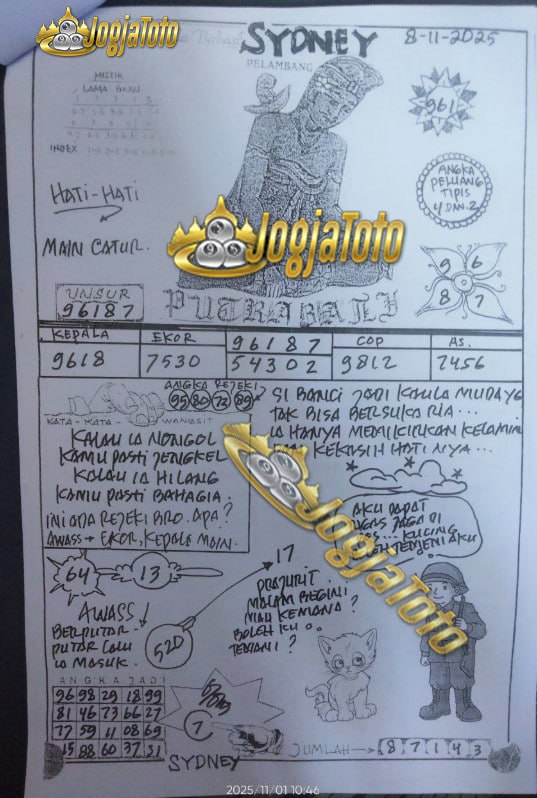 JogjaToto
SYDNEY
8-11-2025
PELAMBANG
MISTIK
LAMA BARU
INDEX
961
HATI-HATI
MAIN CATUR.
ANGKA
PELUANG
TIPIS
4 DAN 2
JogjaToto
UNSUR
96187
9 6
8 7
PUTRA BALI
KEPALA EKOR 96187 COP AS.
9618 7530 54302 9812 7456
ANGKA REJEKI
95 80 73 89
KATA-KATA WANGSIT
KALAU IA NONGOL
KAMU PASTI JENGKEL
KALAU IA HILANG
KAMU PASTI BAHAGIA.
INI ADA REJEKI BRO. APA?
AWASS → EKOR, KEPALA MAIN.
SI BANCI JADI KAULA MUDA YG
TAK BISA BERSUKA RIA...
IA HANYA MEMIKIRKAN KELAMIN
KEKASIH HATI NYA...
AKU DAPAT
JAGA DI
KUCING
AKU
JogjaToto
64
13
17
PRAJURIT.
MALAM BEGINI
MAU KEMANA?
BOLEH KU
TEMANI?
AWASS!
BERPUTAR-
PUTAR LALU
IA MASUK.
520
ANGKA JADI
96 98 29 18 99
81 46 73 66 27
77 59 11 08 69
15 88 60 37 31
7
SYDNEY
JUMLAH → 8 7 1 4 3
2025/11/01 10:46